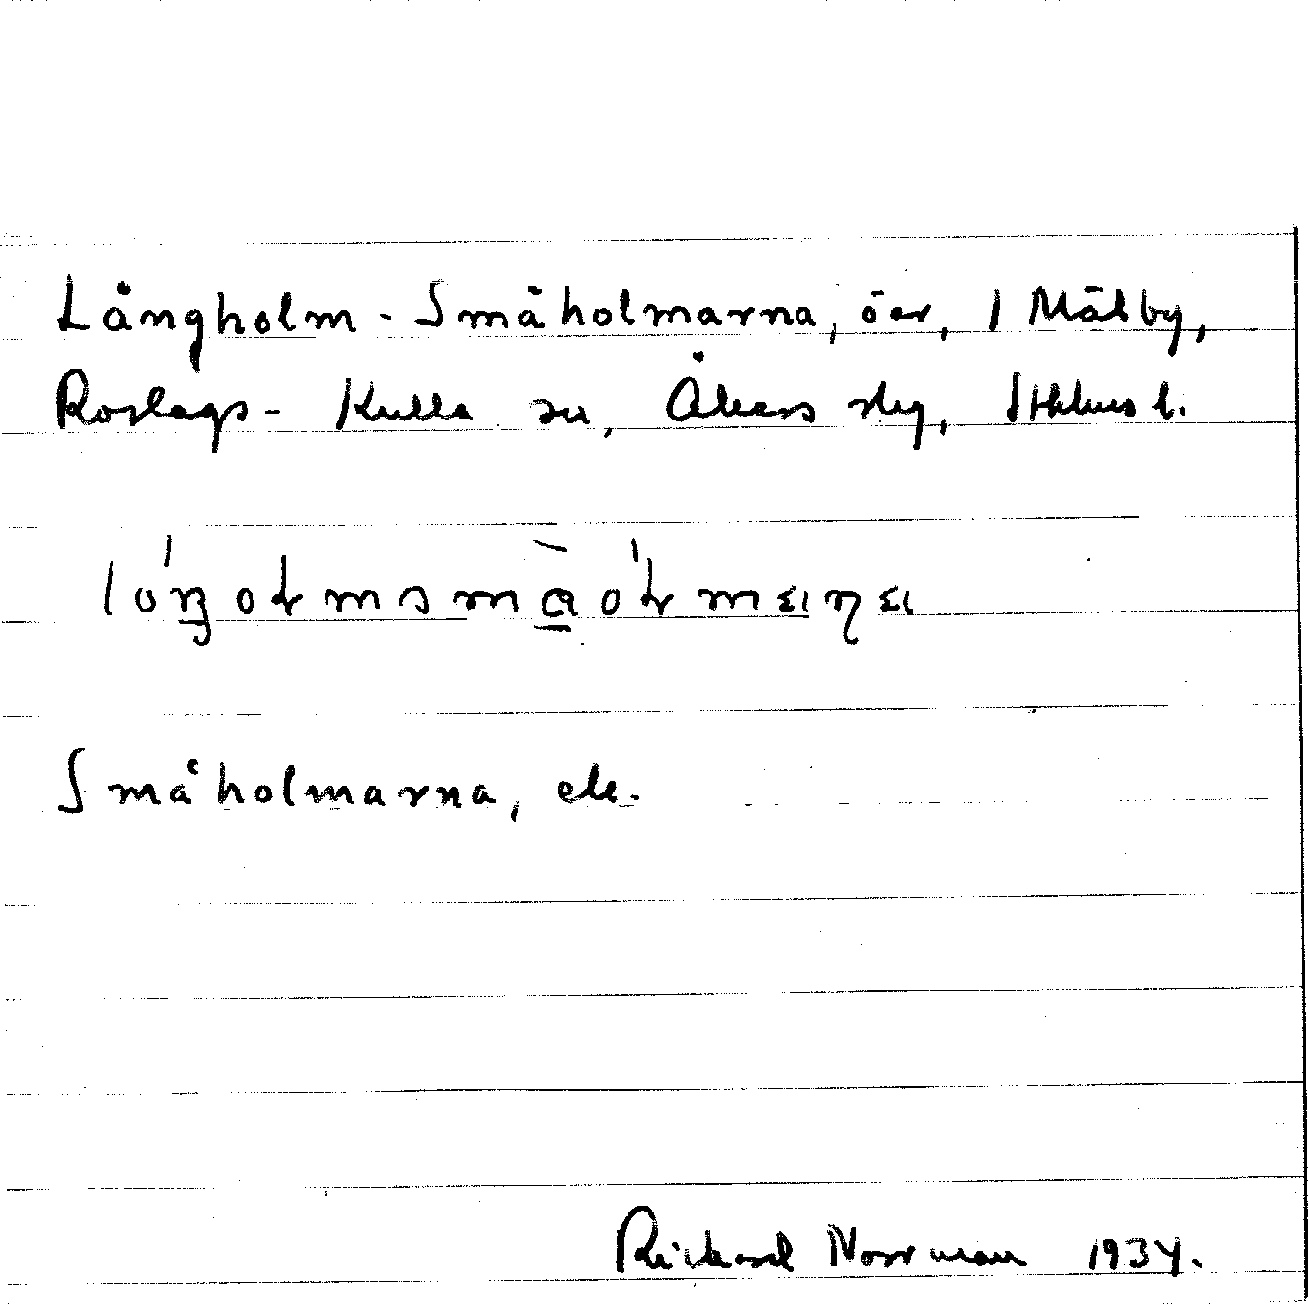 Långholm - Småholmarna, öar, 1 Målby,
Roslags-Kulla sn, Åkers skg, Sthlms l.
Småholmarna, ete.
Rickard Norrman 1934.